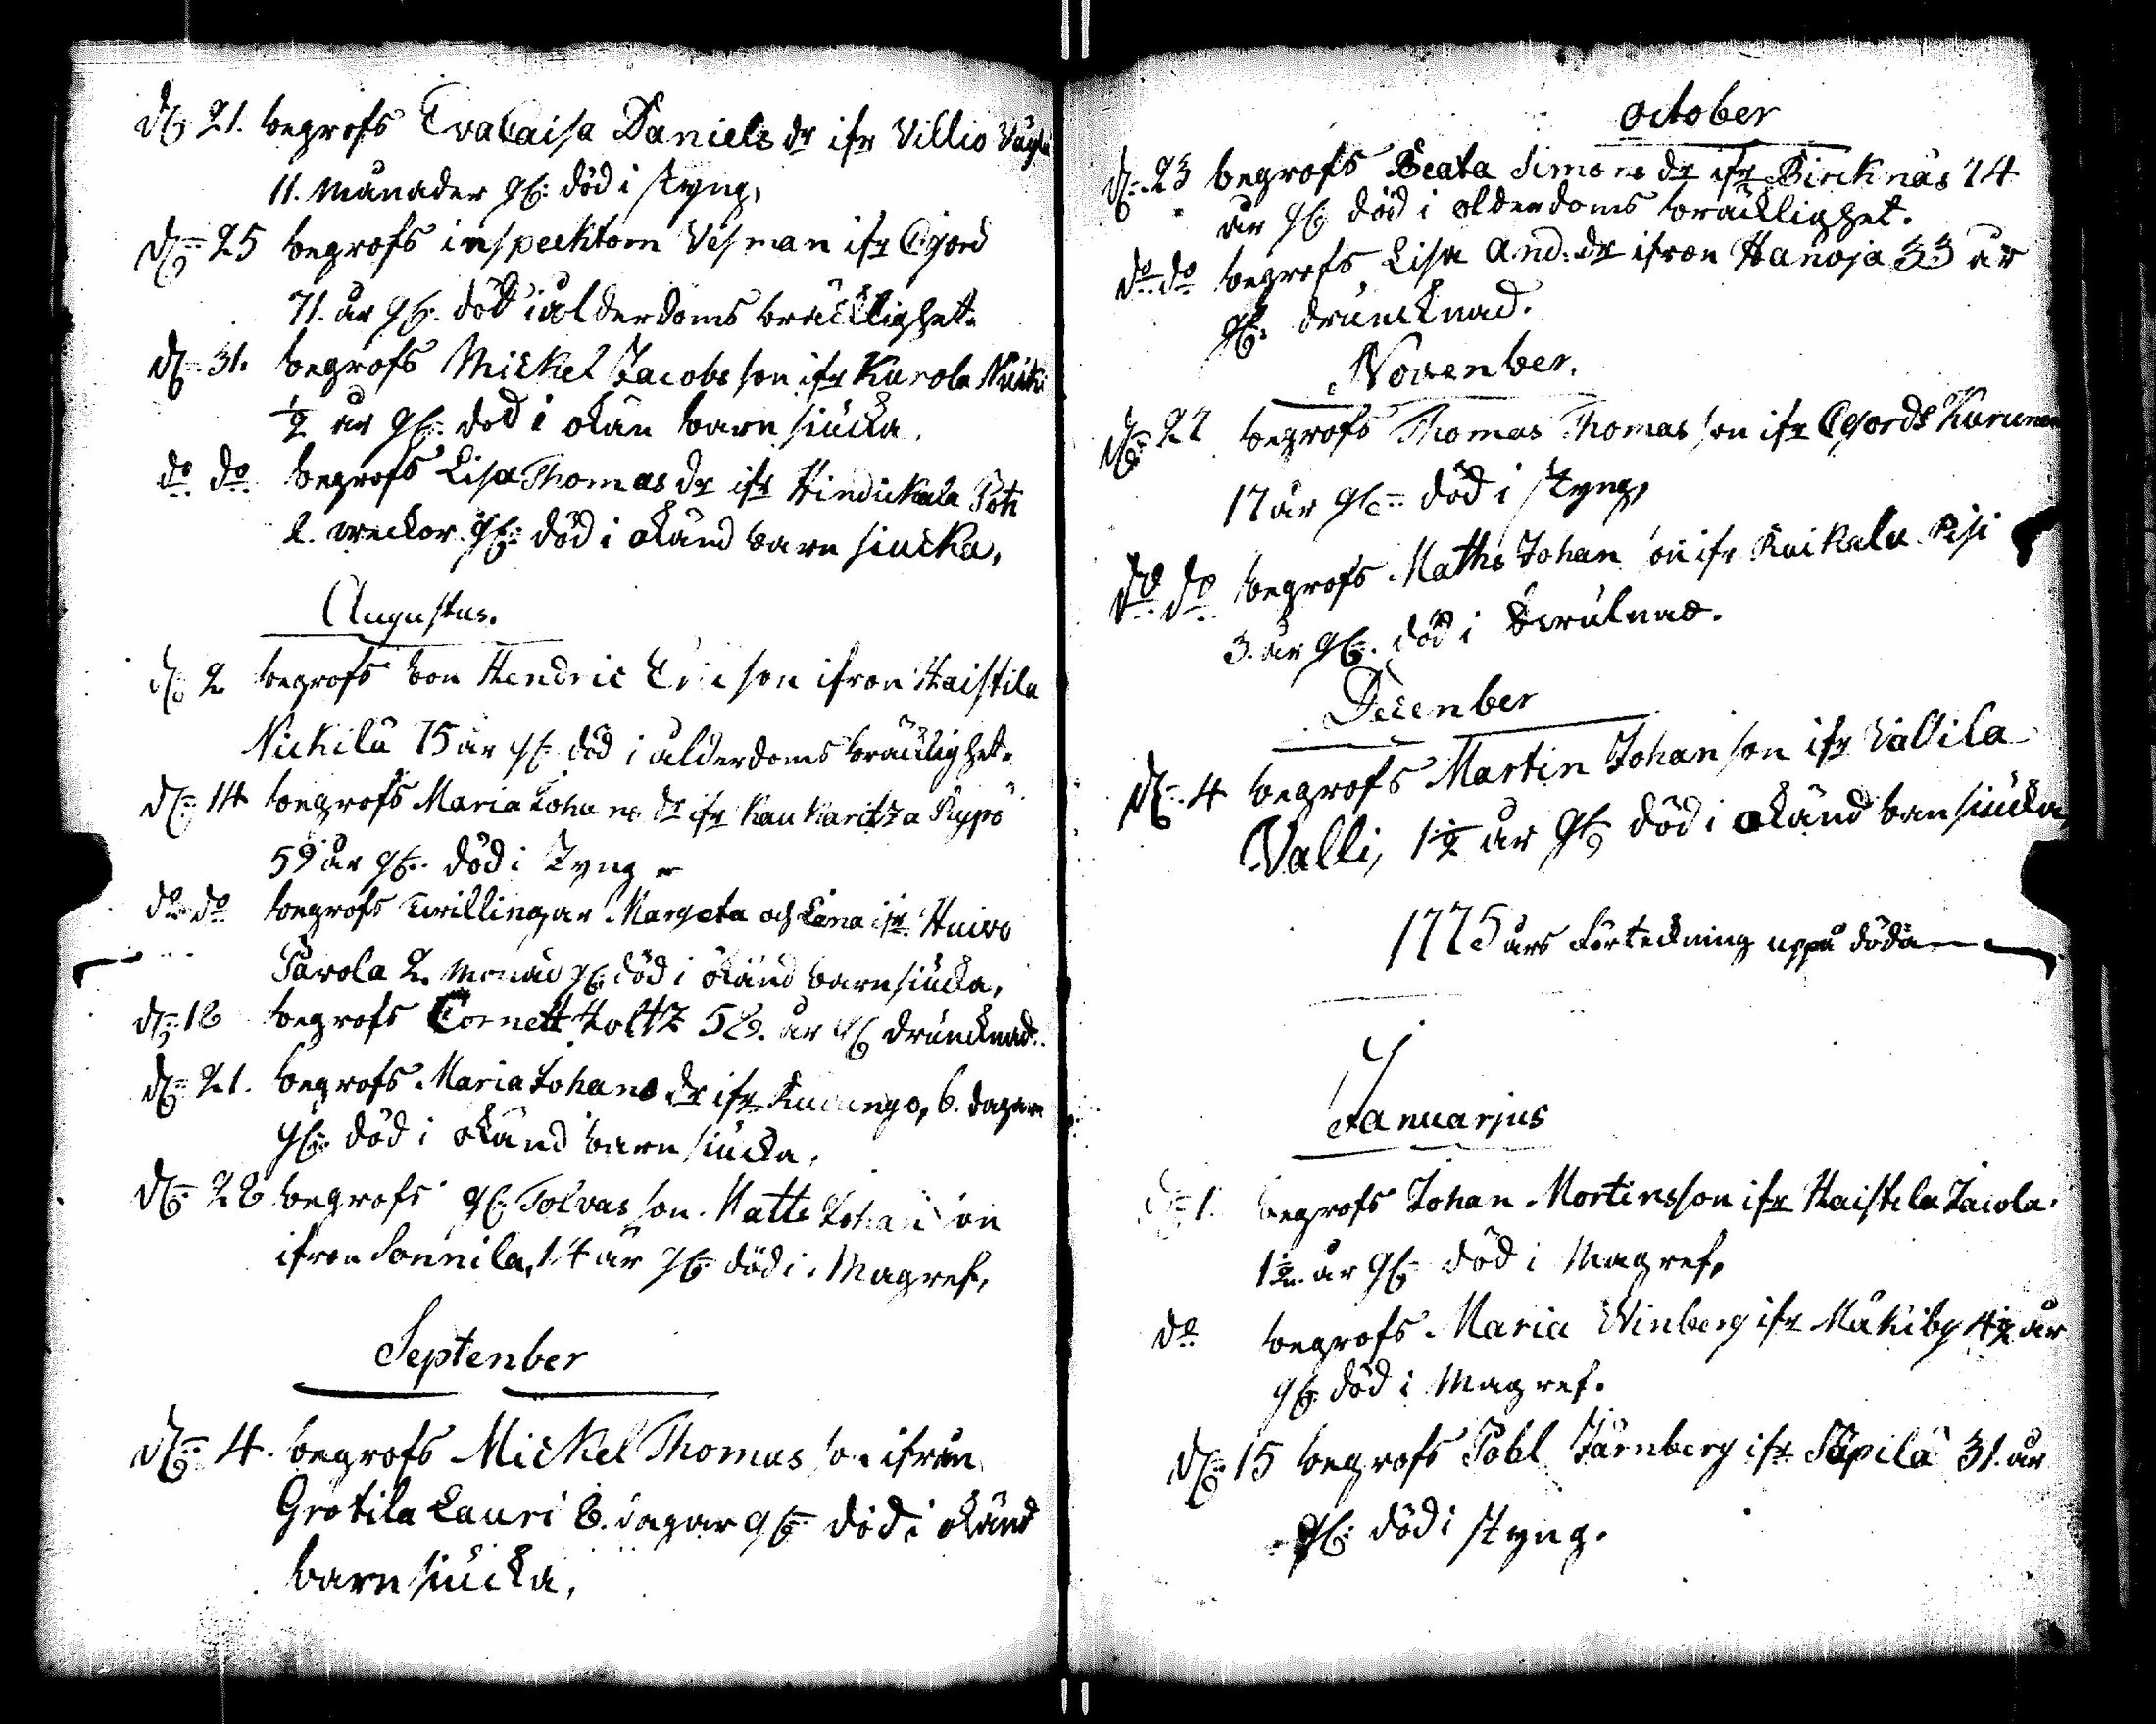 d: 21. begrofs Eva Caisa Daniels dr ifr Villio
11. Månader gl: död i styng,
d: 25 begrofs inspecktorn Vesman ifr Cgård
71. år gl. död i ålderdoms bräcklighet.
d: 31. begrofs Mickel Jacobs son ifr Karola
½ år gl. död i okän barn siucka.
do do begrofs Lisa Thomas dr ifr Hindickala
2. weckor gl: död i okänd barn siucka,
Augustus.
d: 2 begrofs bon Hendric Ericson ifrån Haistila
Nickilä 75 år gl: död i ålderdoms bräcklighet.
d: 14 begrofs Maria Johans dr ifr Kaukaritza Rypö
59 år gl. död i styng
do do begrofs twillingar Margeta och Lena ifr Huivo
Parola 2. monad gl: död i okänd barn siucka,
d: 18 begrofs Cornett Holtz 58. år gl druncknad.
d: 21. begrofs Maria Johans dr ifr 6. dagar
gl: död i okänd barn siucka,
d: 28 begrofs gl: Tolvas son Matts Johan son
ifrån Sonnila, 14 år gl: död i Magref,
September
d: 4. begrofs Mickel Thomas son ifrån
Grotila Lauri 8. dagar gl: död i okänd
barn siucka,
october
d: 23 begrofs Beata Simons dr ifr Bircknäs 74
år gl: död i olderdoms bräcklighet.
do do begrofs Lisa And: dr ifron Hanoja 33 år
gl: druncknad.
November.
d: 22 begrofs Thomas Thomas son ifr Cgords
17 år gl: död i styng,
do do begrofs Maths Johan son ifr Raikala
3. år gl: död i
December
d: 4 begrofs Martin Johan son ifr Vallila
Valli, 1½ år gl: död i okänd barn siucka,
1775 års förteckning uppå döda
Januarjus
d: 1. begrofs Johan Mortinsson ifr Haistila Jacola.
1½ år gl: död i Magref,
do begrofs Maria Winberg ifr Mäkiby 4½ år
gl: död i Magref.
d: 15 begrofs Påhl Järnberg ifr Säpilä 31. år
gl: död i styng.